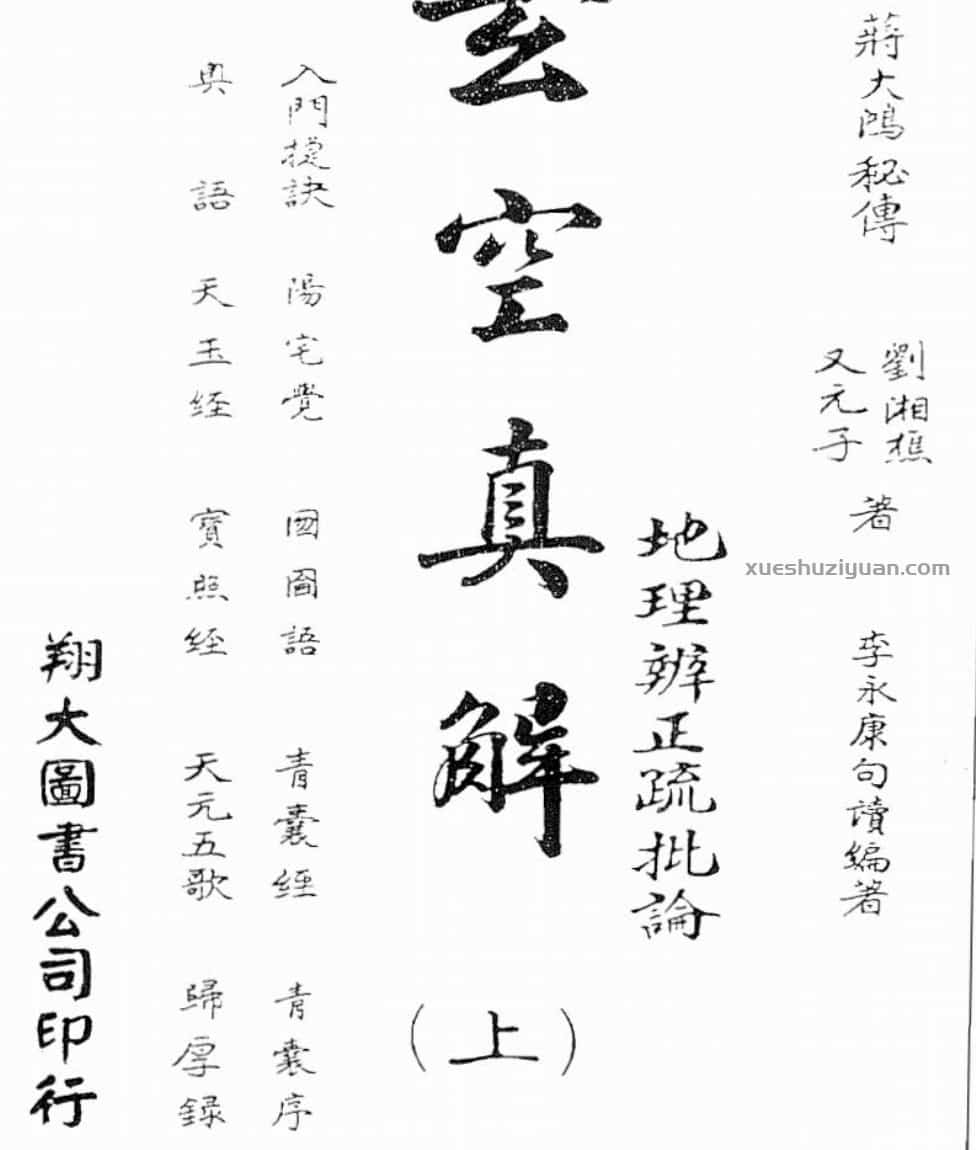 蔣大鴻秘傳
劉湘樵
又元子
著
李永康句讀編著
地理辨正疏批論
玄空真解
（上）
入門捷訣　陽宅覺　國圖語　青囊經　青囊序
奥語　天玉經　寶照經　天元五歌　歸厚録
翔大圖書公司印行
xueshuziyuan.com